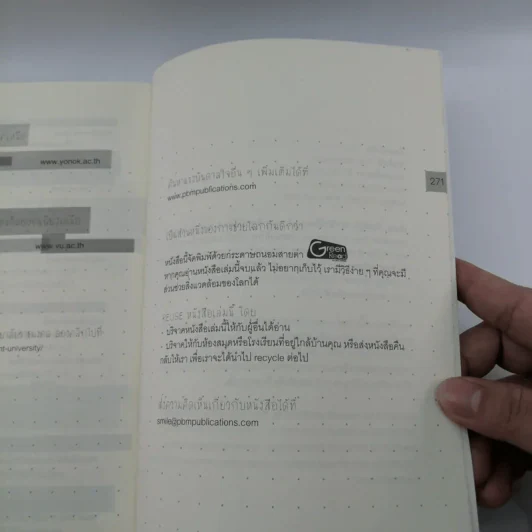 www.yonok.ac.th
www.vu.ac.th
nt-university/
271
ค้นหาแรงบันดาลใจอื่น ๆ เพิ่มเติมได้ที่
www.pbmpublications.com
หนังสือนี้จัดพิมพ์ด้วยกระดาษถนอมสายตา Green Read
หากคุณอ่านหนังสือเล่มนี้จบแล้ว ไม่อยากเก็บไว้ เรามีวิธีง่าย ๆ ที่คุณจะมี
ส่วนช่วยสิ่งแวดล้อมของโลกได้
REUSE หนังสือเล่มนี้ โดย
- บริจาคหนังสือเล่มนี้ให้กับผู้อื่นได้อ่าน
- บริจาคให้กับห้องสมุดหรือโรงเรียนที่อยู่ใกล้บ้านคุณ หรือส่งหนังสือคืน
กลับให้เรา เพื่อเราจะได้นำไป recycle ต่อไป
ส่งความคิดเห็นเกี่ยวกับหนังสือได้ที่
smile@pbmpublications.com